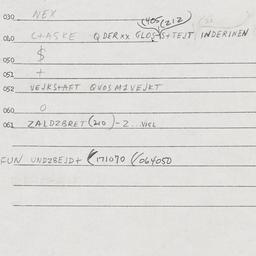 030 NEX
(405(212
040 C+ASKE QDERXX GLOS-IS+TEJT INDERINEN
050 $
051 +
052 VEJKS+AFT QVOSM1VEJKT
060 O
061 ZALDZBRET(210)-2...NICL
FUN UNDZBEJD+ (171070 (064050